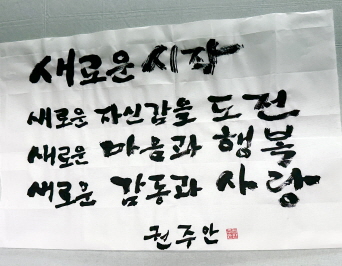 새로운 시작
새로운 자신감을 도전
새로운 마음과 행복
새로운 감동과 사랑
권주안